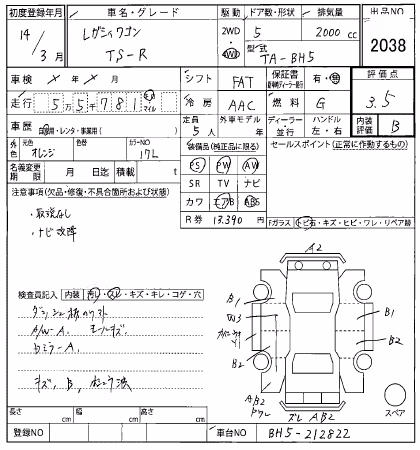 初度登録年月 車名・グレード 駆動 ドア数・形状 排気量 出品NO
14 / 3月 レガシィワゴン TS-R 2WD 4WD 5 2000cc 2038
型式 TA-BH5
車検 × 年 × 月 シフト FAT 保証書 有・無 評価点
走行 5万5千781 km マイル 冷房 AAC 燃料 G 3.5
車歴 自家用・レンタ・事業用( ) 定員 5人 外車モデル 年 ディーラー 並行 ハンドル 左・右 内装評価 B
外色 元色 オレンジ 色替 カラーNO 17L 装備品(純正品に限る) セールスポイント(正常に作動するもの)
名義変更期限 月 日迄 積載 t PS PW AW
SR TV ナビ
注意事項(欠品・修復・不具合箇所および状態) カワ エアB ABS
・取説なし R券 13,390円 Fガラス トビ石・キズ・ヒビ・ワレ・リペア跡
・ナビ故障
A2
検査員記入 内装 汚レ・スレ・キズ・キレ・コゲ・穴
B1 B1
W3
B2 B2
A/W-A.
キズ, B,
AB2
スペア
ズレ AB2
長さ cm 幅 cm 高さ cm
登録NO 車台NO BH5-212822